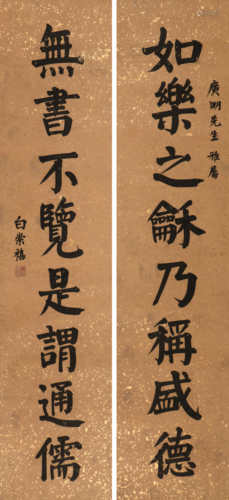 廣瑚先生 雅屬
如樂之龢乃稱盛德
無書不覽是謂通儒
白崇禧